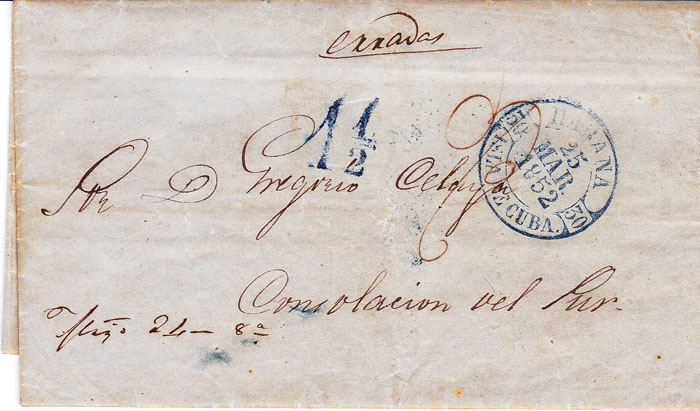 erradas
1 1/2
HABANA
25
MAR.
1852
30
ISLA DE CUBA.
30
Sor D Gregorio Celaya
Consolacion del Sur.
24 — 8ª